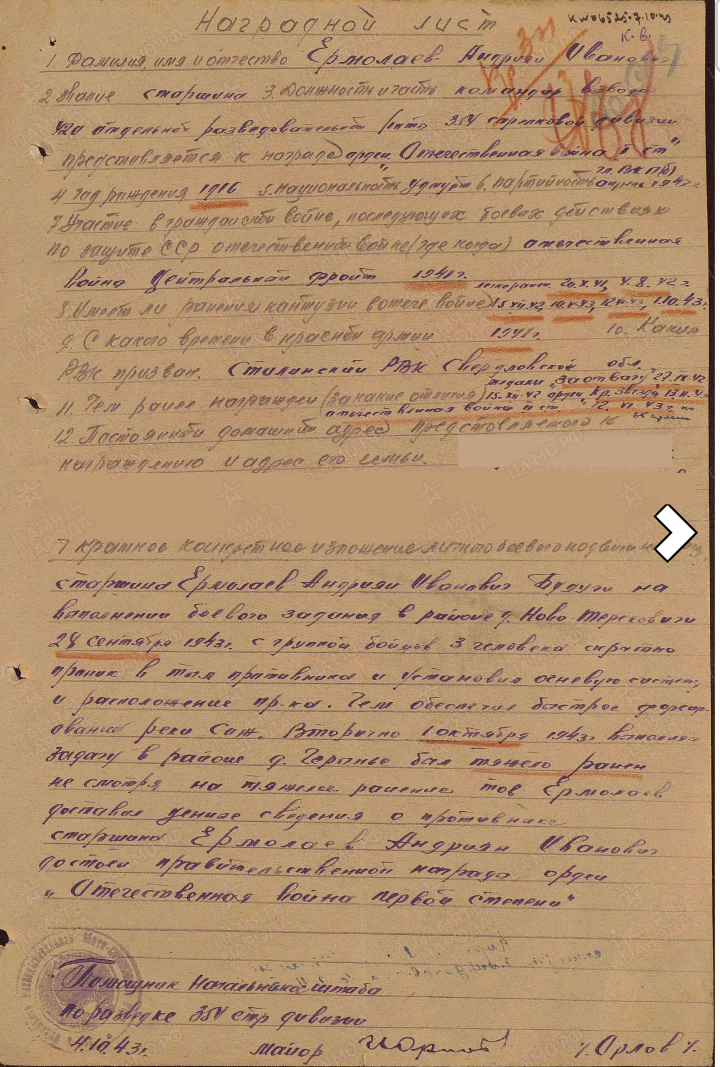 Наградной лист
1. Фамилия, имя и отчество Ермолаев Андриян Иванович
2 Звание старшина 3. Должность и часть командир взвода
отдельной разведовательной роты 354 стрелковой дивизии
представляется к награде орден "Отечественная война I ст"
4 Год рождения 1916 5. Национальность удмурт 6. Партийность
7. Участие в гражданской войне, последующих боевых действиях
по защите ССР отечественной войне (где когда) отечественная
Война Центральный фронт 1941г.
8. Имеет ли ранения контузии в отече войне
9. С какого времени в красной армии 1941г. 10. Каким
РВК призван. Сталинский РВК Свердловской обл.
11. Чем ранее награжден (за какие отличия) медали "За отвагу"
15.XII.42 орден Кр. Звезда
отечественная война II ст.
12 Постоянный домашний адрес представляемого к
награждению и адрес его семьи.
Краткое конкретное изложение личного боевого подвига
старшина Ермолаев Андриян Иванович Будучи на
выполнении боевого задания в районе д. Ново-Терехович
28 сентября 1943г. с группой бойцов 3 человека скрытно
проник в тыл противника и установил огневую систему
и расположение пр-ка. Чем обеспечил быстрое форсир-
ование реки Сож. Вторично 1 октября 1943г выполняя
задачу в районе д. был тяжело ранен
не смотря на тяжелое ранение тов Ермолаев
доставил ценные сведения о противнике
старшина Ермолаев Андриян Иванович
достоен правительственной награды орден
"Отечественная война первой степени"
Помощник Начальника штаба
по разведке 354 стр дивизии
4.10.43г. майор /Орлов/.